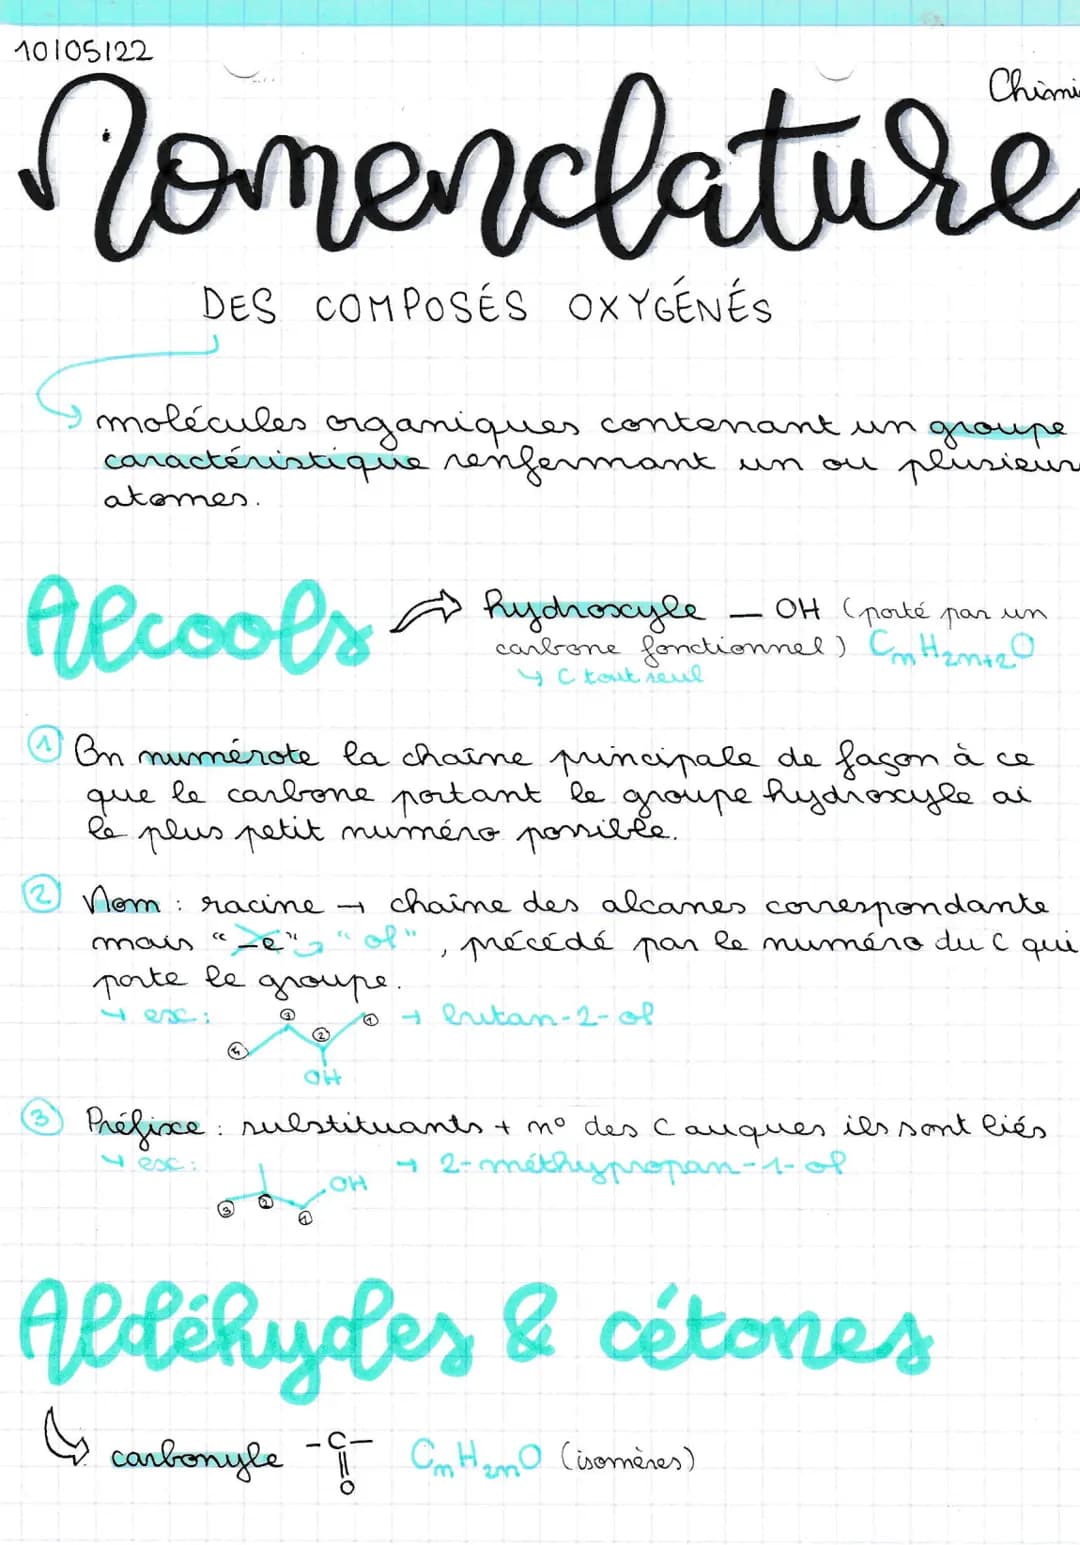 10/05/22
Chimi
Nomenclature
DES COMPOSÉS OXYGÉNÉS
molécules organiques contenant un groupe
caractéristique renfermant un ou plusieurs
atomes.
Alcools ⇒ hydroxyle — OH (porté par un
carbone fonctionnel) CnH2n+2O
↳ C tout seul
① On numérote la chaîne principale de façon à ce
que le carbone portant le groupe hydroxyle ai
le plus petit numéro possible.
② Nom : racine → chaîne des alcanes correspondante
mais "-e" → "ol", précédé par le numéro du C qui
porte le groupe.
↳ ex : → butan-2-ol
④ ③ ② ①
OH
③ Préfixe : substituants + n° des C auques ils sont liés
↳ ex : → 2-méthypropan-1-ol
OH
③ ② ①
Aldéhydes & cétones
carbonyle -C- CnH2nO (isomères)
O